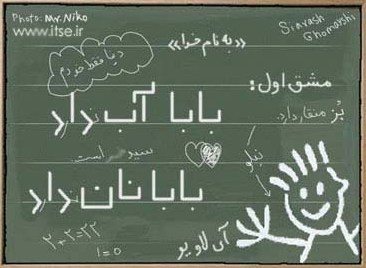 Photo: Mr.Niko
www.itse.ir
«به نام خدا»
Siavash
Ghomayshi
دنیا فقط خودم
مشق اول:
بابا آب ندارد
بز منقار دارد.
است
نیکو
بابا نان ندارد
آی لاو یو
۲+۲=۲۲
۱=۰